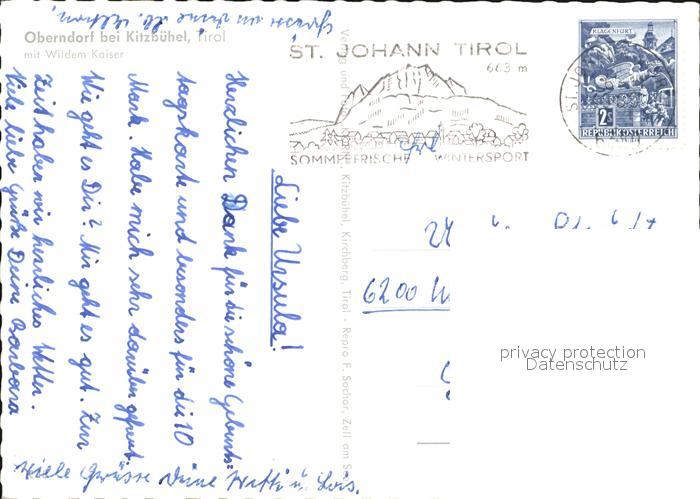 Oberndorf bei Kitzbühel, Tirol
mit Wildem Kaiser
ST. JOHANN TIROL
663 m
SOMMERFRISCHE WINTERSPORT
KLAGENFURT
2
REPUBLIK ÖSTERREICH
ST. JO
Liebe Ursula!
Herzlichen Dank für die schöne Geburts-
tagskarte und besonders für die 10
Mark. Habe mich sehr darüber gefreut.
Wie geht es Dir? Mir geht es gut. Zur
Zeit haben wir herrliches Wetter.
Viele liebe Grüße Deine Barbara
Grüsse an deine lb. Eltern,
Viele Grüsse Deine u. Lois.
Kitzbühel, Kirchberg, Tirol - Repro F. Sochor, Zell am S
6200
privacy protection
Datenschutz